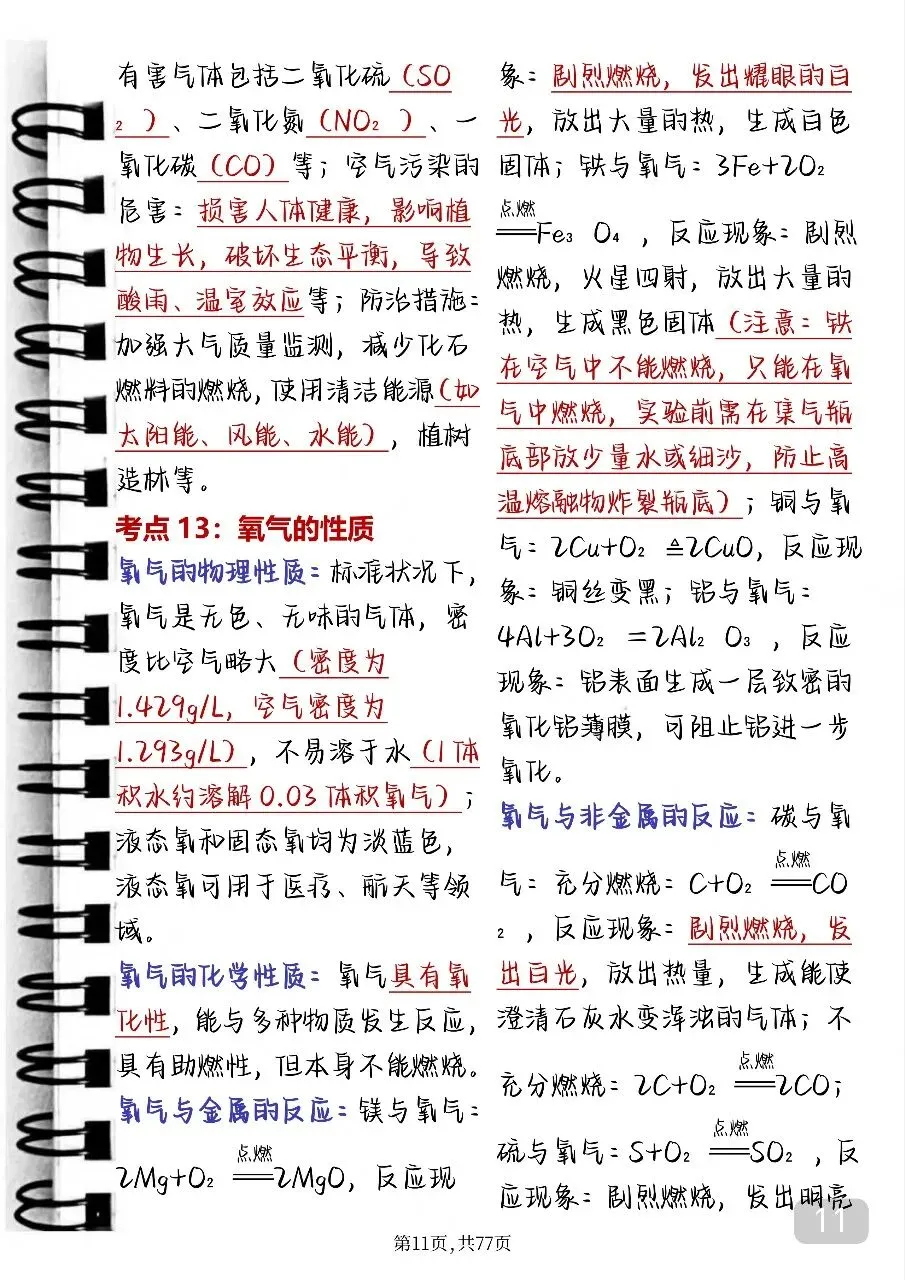 有害气体包括二氧化硫（SO
₂ ）、二氧化氮（NO₂ ）、一
氧化碳（CO）等；空气污染的
危害：损害人体健康，影响植
物生长，破坏生态平衡，导致
酸雨、温室效应等；防治措施：
加强大气质量监测，减少化石
燃料的燃烧，使用清洁能源（如
太阳能、风能、水能），植树
造林等。
考点 13：氧气的性质
氧气的物理性质：标准状况下，
氧气是无色、无味的气体，密
度比空气略大（密度为
1.429g/L，空气密度为
1.293g/L），不易溶于水（1 体
积水约溶解 0.03 体积氧气）；
液态氧和固态氧均为淡蓝色，
液态氧可用于医疗、航天等领
域。
氧气的化学性质：氧气具有氧
化性，能与多种物质发生反应，
具有助燃性，但本身不能燃烧。
氧气与金属的反应：镁与氧气：
点燃
2Mg+O₂ ══2MgO，反应现
象：剧烈燃烧，发出耀眼的白
光，放出大量的热，生成白色
固体；铁与氧气：3Fe+2O₂
点燃
══Fe₃ O₄ ，反应现象：剧烈
燃烧，火星四射，放出大量的
热，生成黑色固体（注意：铁
在空气中不能燃烧，只能在氧
气中燃烧，实验前需在集气瓶
底部放少量水或细沙，防止高
温熔融物炸裂瓶底）；铜与氧
气：2Cu+O₂ ≙2CuO，反应现
象：铜丝变黑；铝与氧气：
4Al+3O₂ =2Al₂ O₃ ，反应
现象：铝表面生成一层致密的
氧化铝薄膜，可阻止铝进一步
氧化。
氧气与非金属的反应：碳与氧
点燃
气：充分燃烧：C+O₂ ══CO
₂ ，反应现象：剧烈燃烧，发
出白光，放出热量，生成能使
澄清石灰水变浑浊的气体；不
点燃
充分燃烧：2C+O₂ ══2CO；
点燃
硫与氧气：S+O₂ ══SO₂ ，反
应现象：剧烈燃烧，发出明亮
11
第11页，共77页